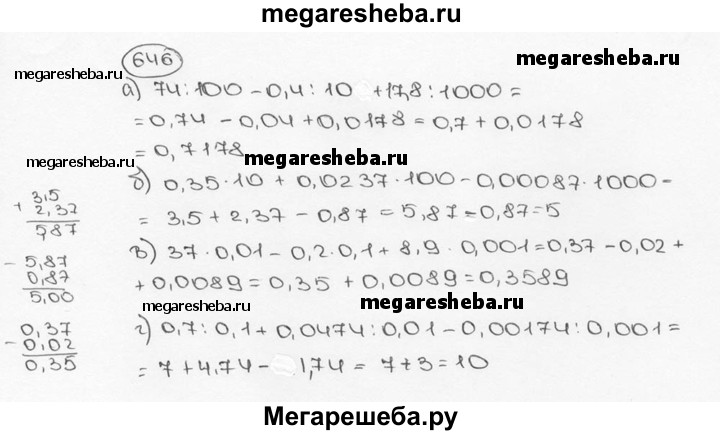 megaresheba.ru
646
megaresheba.ru
megaresheba.ru
а) 74:100 - 0,4:10 + 17,8:1000 =
= 0,74 - 0,04 + 0,0178 = 0,7 + 0,0178
= 0,7178
megaresheba.ru
megaresheba.ru
б) 0,35·10 + 0,0237·100 - 0,00087·1000 -
= 3,5 + 2,37 - 0,87 = 5,87 - 0,87 = 5
3,5
+ 2,37
5,87
в) 37·0,01 - 0,2·0,1 + 8,9·0,001 = 0,37 - 0,02 +
+ 0,0089 = 0,35 + 0,0089 = 0,3589
- 5,87
0,87
5,00
megaresheba.ru
megaresheba.ru
г) 0,7:0,1 + 0,0474:0,01 - 0,00174:0,001 =
= 7 + 4,74 - 1,74 = 7 + 3 = 10
0,37
- 0,02
0,35
Мегарешеба.ру